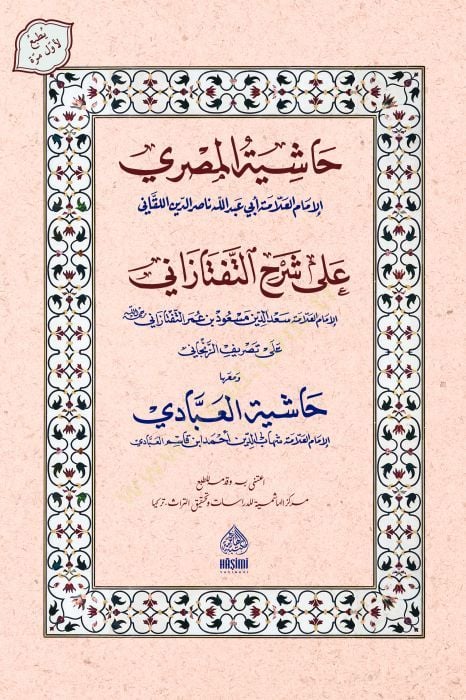 يُطبع
لأول مرة
حَاشِيَةُ المِصْرِي
الإمام العلامة أبي عبد الله ناصر الدين اللقاني
عَلى شَرْح التَّفْتَازَاني
الإمام العلامة سعد الدين مسعود بن عمر التفتازاني رحمه الله
على تصريف الزنجاني
ومعها
حاشية العَبَّادي
الإمام العلامة شهاب الدين أحمد ابن قاسم العبادي
اعتنى به وقدمه للطبع
مركز الهاشمية للدراسات وتحقيق التراث، تركيا
HÂŞİMİ
YAYINEVİ